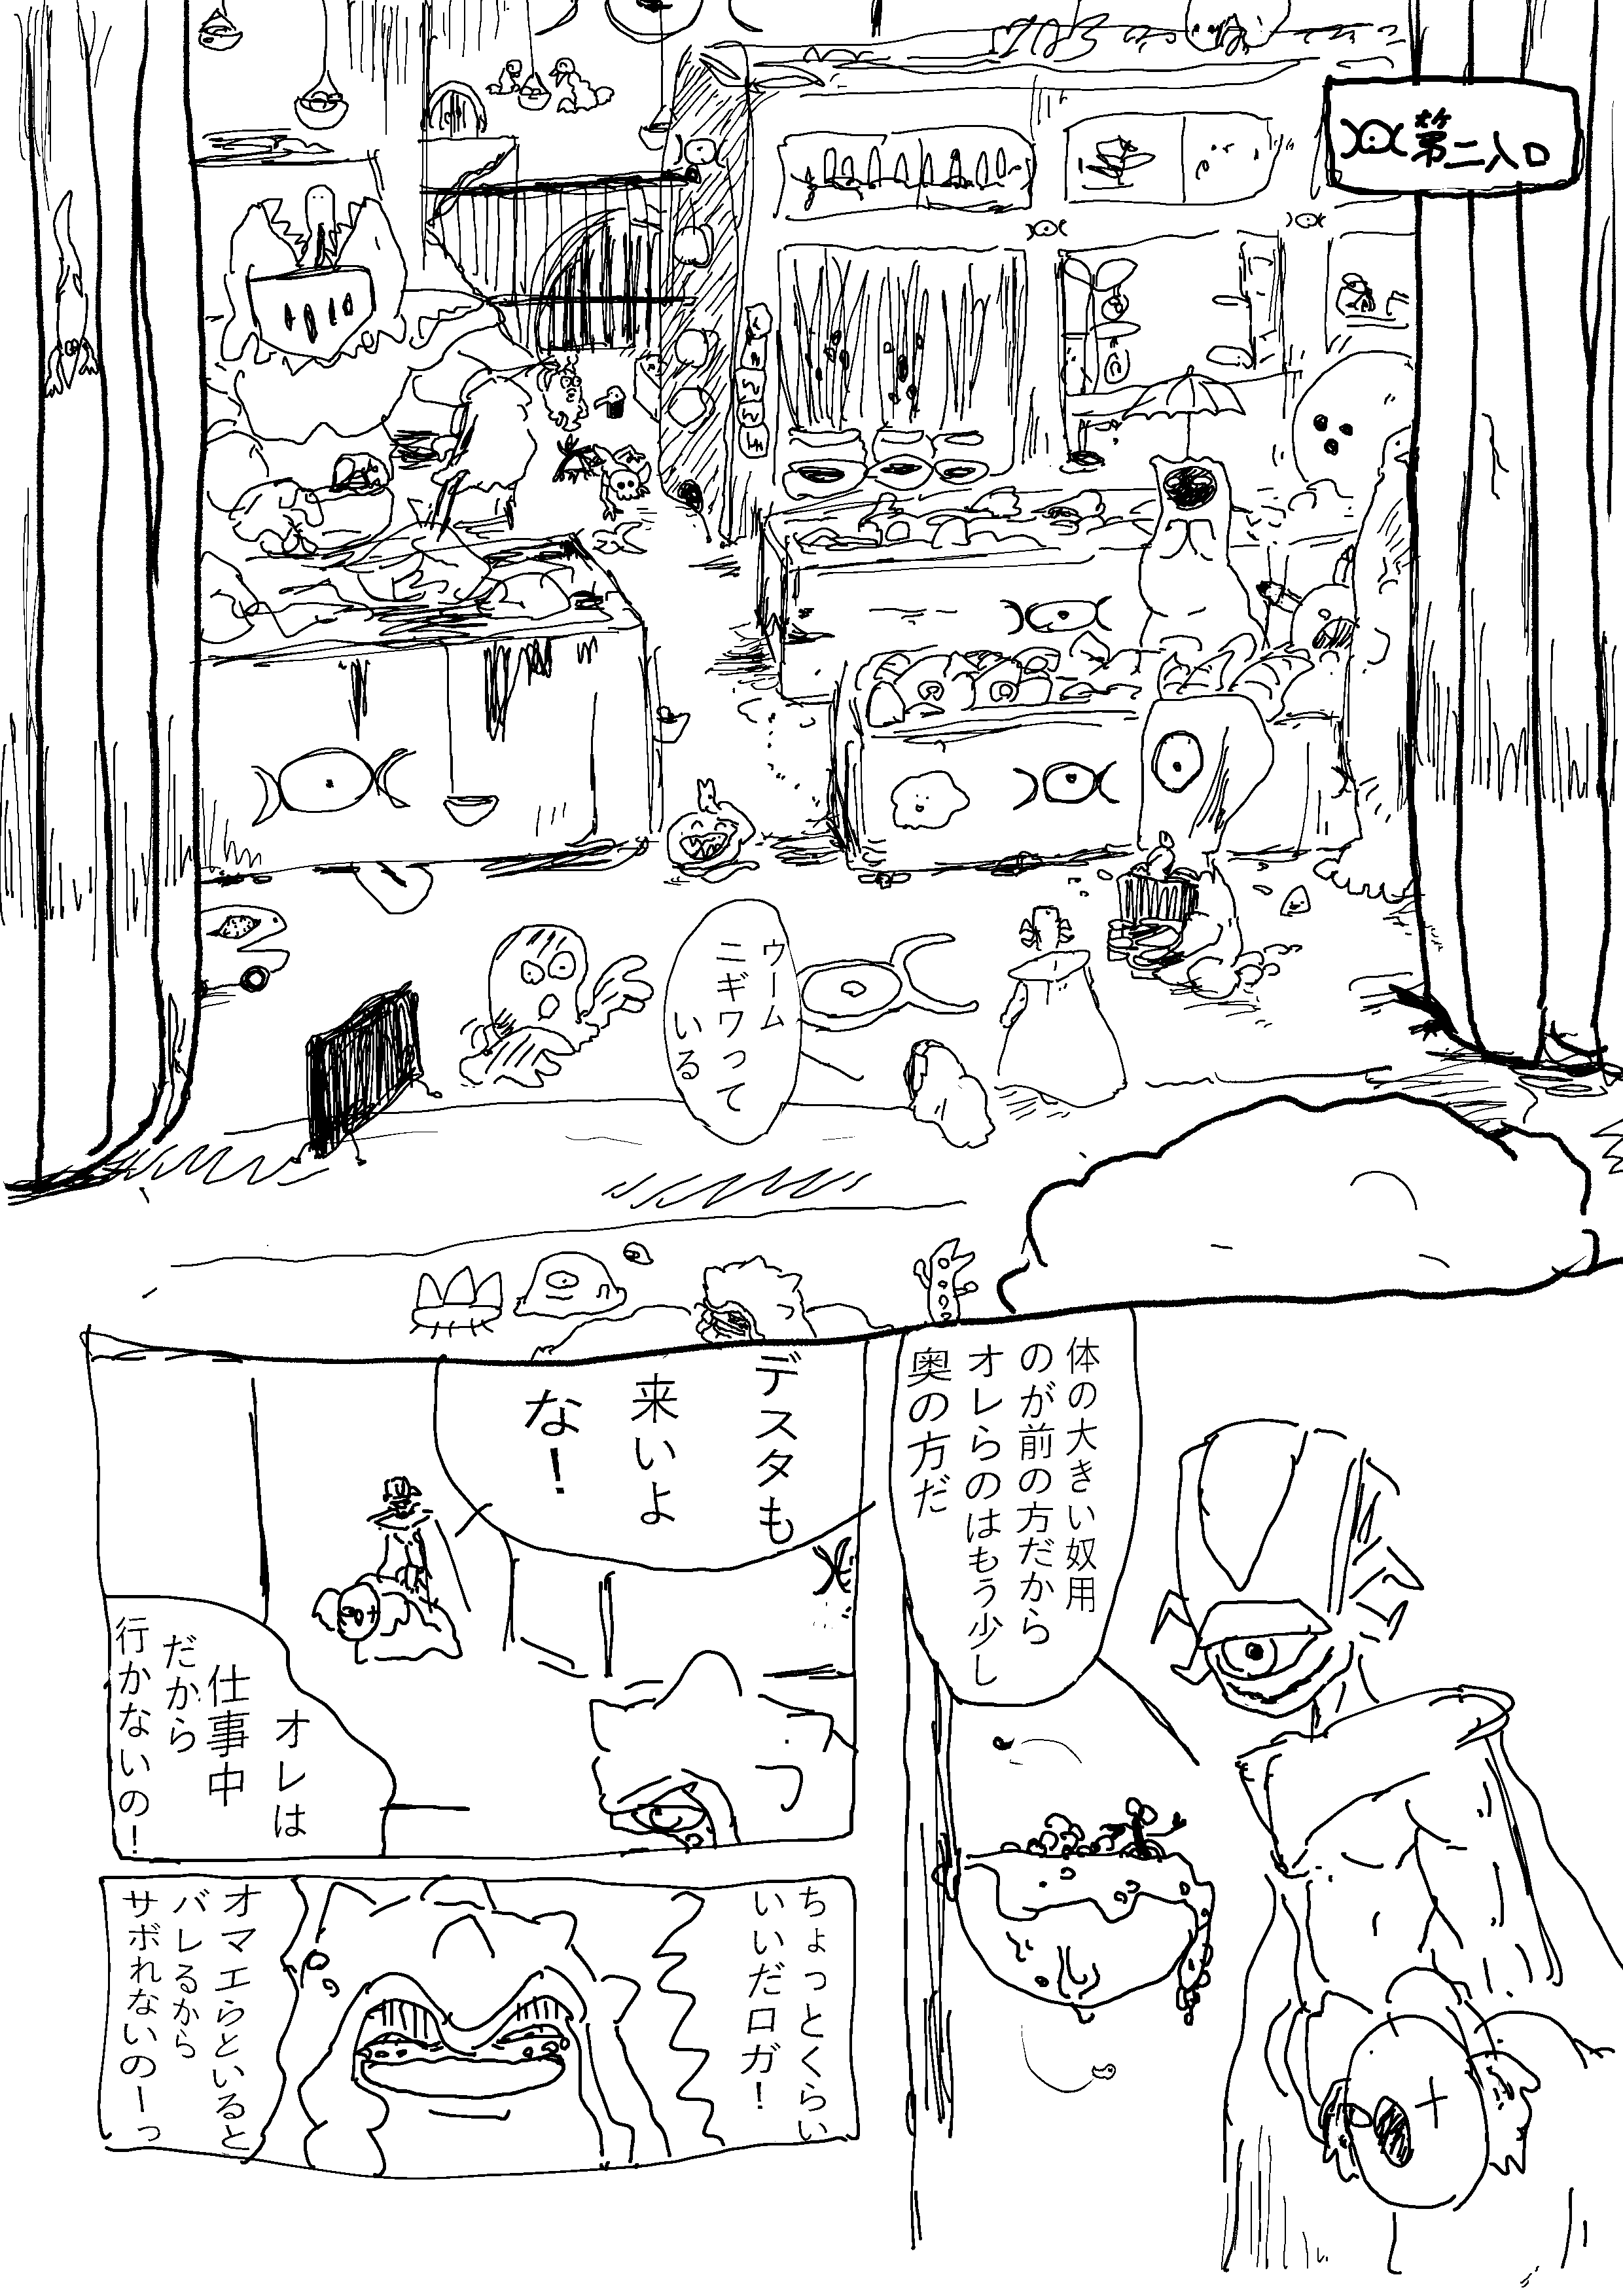 第二入口
ウーム
ニギワって
いる
体の大きい奴用
のが前の方だから
オレらのはもう少し
奥の方だ
デスタも
来いよ
な！
オレは
仕事中
だから
行かないの！
ちょっとくらい
いいだロガ！
オマエらといると
バレるから
サボれないのーっ